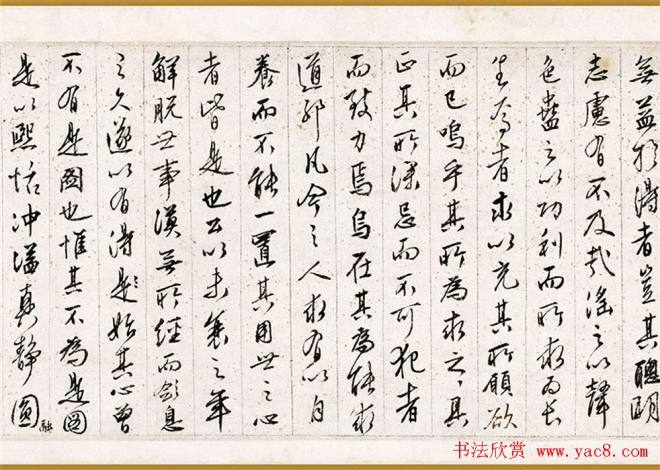 無益於得者豈其聰明
志慮有不及哉淫之以聲
色蠱之以功利而所求而長
生焉者求以充其所願欲
而已嗚乎其所為求之之具
正其所深忌而不可犯者
而致力焉烏在其為能求
道耶凡今之人求有以自
養而不能一置其用世之心
者皆是也公以未衰之年
解脫世事漠無所經而歛息
之久遂以有得是始其心曾
不有是圖也惟其不為是圖
是以熙恬沖溢真靜圓
融
书法欣赏 www.yac8.com